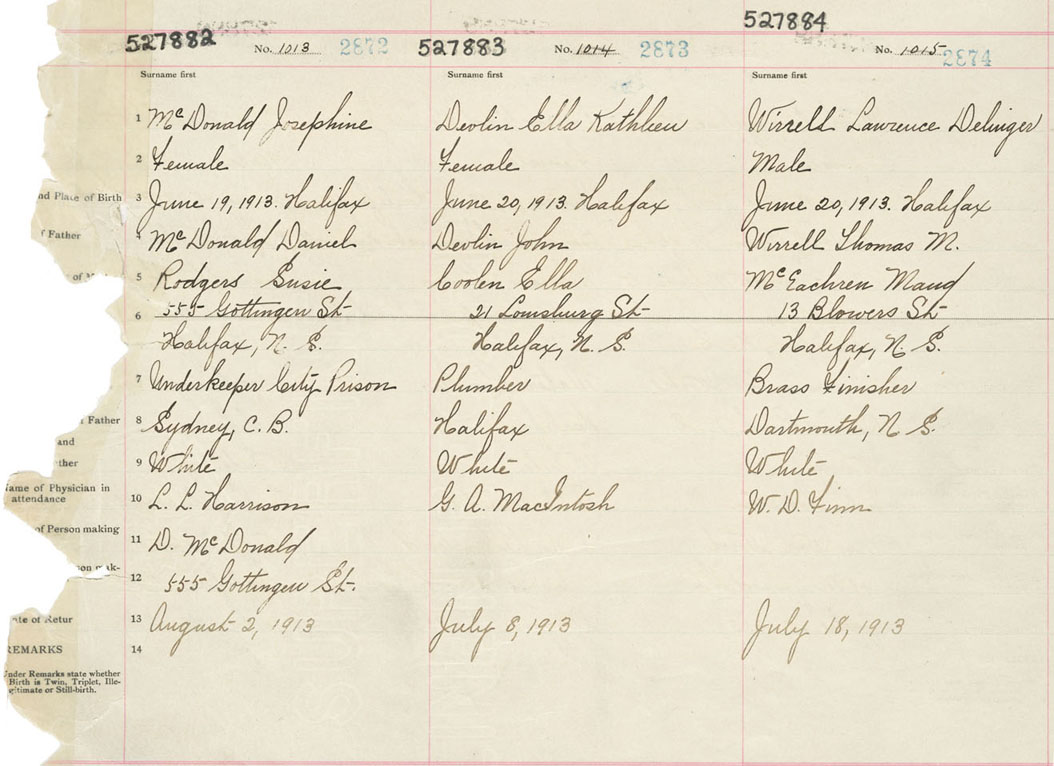 527884
527882 No. 1013 2872 527883 No. 1014 2873 No. 1015 2874
Surname first Surname first Surname first
1 McDonald Josephine Devlin Ella Kathleen Wirrell Lawrence Delinger
2 Female Female Male
nd Place of Birth 3 June 19, 1913. Halifax June 20, 1913. Halifax June 20, 1913. Halifax
f Father 4 McDonald Daniel Devlin John Wirrell Thomas M.
of 5 Rodgers Susie Coolen Ella McEachren Maud
6 555 Gottingen St. 21 Louisburg St. 13 Blowers St.
Halifax, N. S. Halifax, N. S. Halifax, N. S.
7 Underkeeper City Prison Plumber Brass Finisher
Father 8 Sydney, C. B. Halifax Dartmouth, N. S.
and
ther 9 White White White
Name of Physician in
attendance 10 L. L. Harrison G. A. MacIntosh W. D. Finn
of Person making
11 D. McDonald
son mak-
12 555 Gottingen St.
ate of Retur 13 August 2, 1913 July 8, 1913 July 18, 1913
REMARKS 14
Under Remarks state whether
Birth is Twin, Triplet, Ille-
gitimate or Still-birth.